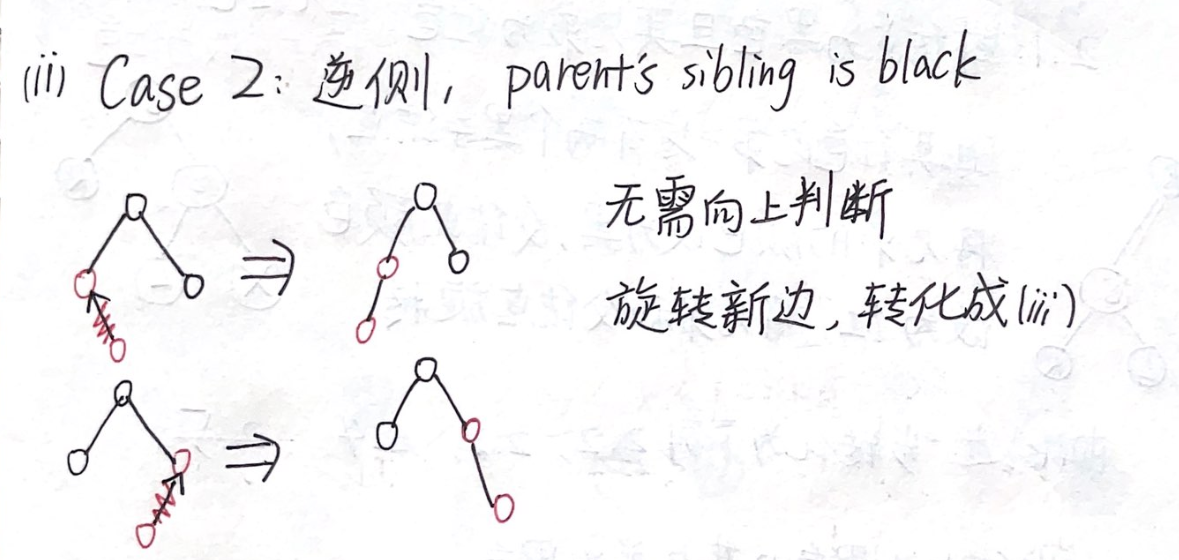 (ii) Case 2: 逆侧, parent's sibling is black
无需向上判断
旋转新边, 转化成(iii)